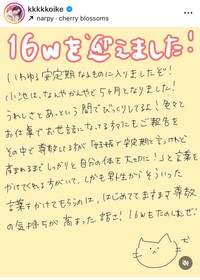 kkkkkoike
narpy・cherry blossoms
16wを迎えました!
いわゆる安定期なるものに入りましたぞ!
小池は、なんやかんやと5ヶ月となりました!
うれしさとあっという間でびっくりしてるよ!色々と
お仕事でお世話になってる方々にもご報告を
その中で尊敬してる方が「妊娠で安定期と言うけれど
産まれるまでしっかりと自分の体を大切に!」と言葉を
かけてくれる方がいて、しかも男性からそういった
言葉をかけてもらうのは、はじめてでますます尊敬
の気持ちが高まった 話さ!16wもたのしむぜ!